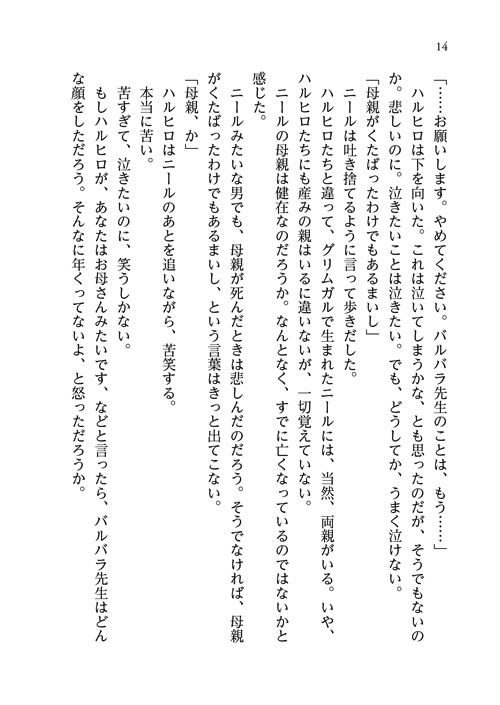 14
「……お願いします。やめてください。バルバラ先生のことは、もう……」
ハルヒロは下を向いた。これは泣いてしまうかな、とも思ったのだが、そうでもないの
か。悲しいのに。泣きたいことは泣きたい。でも、どうしてか、うまく泣けない。
「母親がくたばったわけでもあるまいし」
ニールは吐き捨てるように言って歩きだした。
ハルヒロたちと違って、グリムガルで生まれたニールには、当然、両親がいる。いや、
ハルヒロたちにも産みの親はいるに違いないが、一切覚えていない。
ニールの母親は健在なのだろうか。なんとなく、すでに亡くなっているのではないかと
感じた。
ニールみたいな男でも、母親が死んだときは悲しんだのだろう。そうでなければ、母親
がくたばったわけでもあるまいし、という言葉はきっと出てこない。
「母親、か」
ハルヒロはニールのあとを追いながら、苦笑する。
本当に苦い。
苦すぎて、泣きたいのに、笑うしかない。
もしハルヒロが、あなたはお母さんみたいです、などと言ったら、バルバラ先生はどん
な顔をしただろう。そんなに年くってないよ、と怒っただろうか。